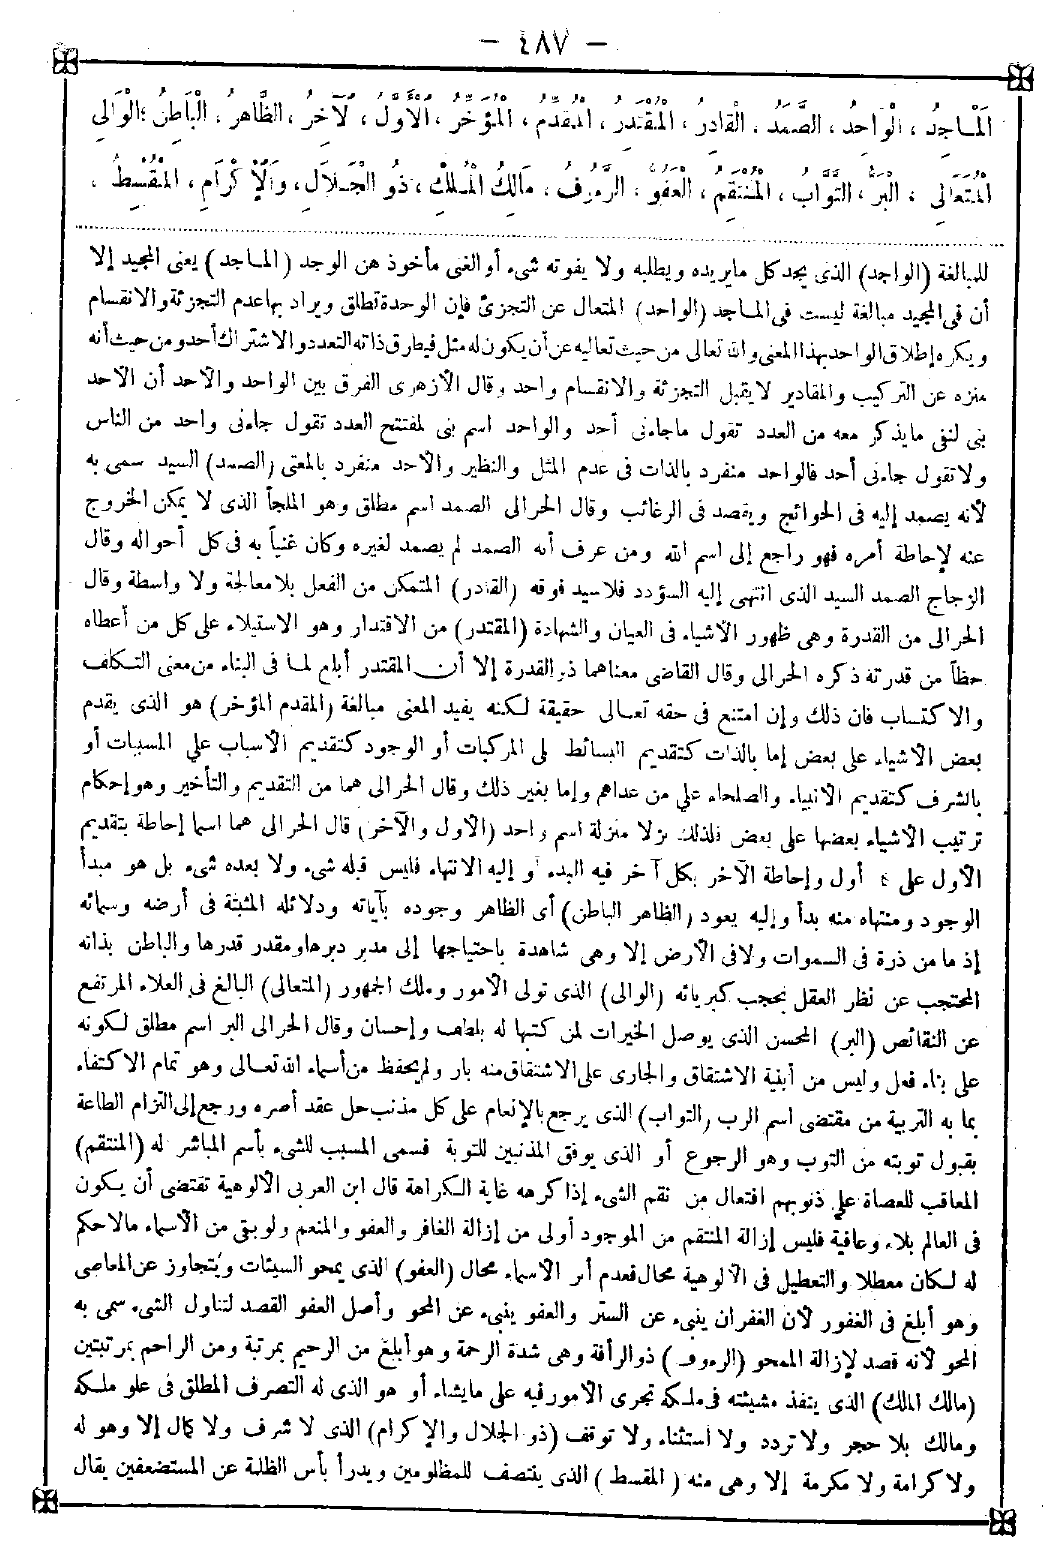 — ٤٨٧ —
اَلْمَاجِدُ ، الْوَاحِدُ ، الصَّمَدُ ، الْقَادِرُ ، الْمُقْتَدِرُ ، الْمُقَدِّمُ ، الْمُؤَخِّرُ ، الْأَوَّلُ ، الْآخِرُ ، الظَّاهِرُ ، الْبَاطِنُ ، الْوَالِي
الْمُتَعَالِي ، الْبَرُّ ، التَّوَّابُ ، الْمُنْتَقِمُ ، الْعَفُوُّ ، الرَّءُوفُ ، مَالِكُ الْمُلْكِ ، ذُو الْجَلَالِ ، وَالْإِكْرَامِ ، الْمُقْسِطُ ،
للمبالغة (الواجد) الذى يجد كل مايريده ويطلبه ولا يفوته شىء أو الغنى مأخوذ من الوجد (الماجد) يعنى المجيد إلا
أن فى المجيد مبالغة ليست فى الماجد (الواحد) المتعال عن التجزئ فإن الوحدة تطلق ويراد بها عدم التجزئة والانقسام
ويكره إطلاق الواحد بهذا المعنى والله تعالى من حيث تعاليه عن أن يكون له مثل فيطرق ذاته التعدد والاشتراك أحد ومن حيث أنه
منزه عن التركيب والمقادير لا يقبل التجزئة والانقسام واحد وقال الأزهرى الفرق بين الواحد والأحد أن الأحد
بنى لنفى مايذكر معه من العدد تقول ماجاءنى أحد والواحد اسم بنى لمفتتح العدد تقول جاءنى واحد من الناس
ولا تقول جاءنى أحد فالواحد منفرد بالذات فى عدم المثل والنظير والأحد منفرد بالمعنى (الصمد) السيد سمى به
لأنه يصمد إليه فى الحوائج ويقصد فى الرغائب وقال الحرالى الصمد اسم مطلق وهو الملجأ الذى لا يمكن الخروج
عنه لإحاطة أمره فهو راجع إلى اسم الله ومن عرف أنه الصمد لم يصمد لغيره وكان غنياً به فى كل أحواله وقال
الزجاج الصمد السيد الذى انتهى إليه السؤدد فلا سيد فوقه (القادر) المتمكن من الفعل بلا معالجة ولا واسطة وقال
الحرالى من القدرة وهى ظهور الأشياء فى العيان والشهادة (المقتدر) من الاقتدار وهو الاستيلاء على كل من أعطاه
حظاً من قدرته ذكره الحرالى وقال القاضى معناهما ذو القدرة إلا أن المقتدر أبلغ لما فى البناء من معنى التكلف
والاكتساب فان ذلك وإن امتنع فى حقه تعالى حقيقة لكنه يفيد المعنى مبالغة (المقدم المؤخر) هو الذى يقدم
بعض الأشياء على بعض إما بالذات كتقديم البسائط على المركبات أو الوجود كتقديم الأسباب على المسببات أو
بالشرف كتقديم الأنبياء والصلحاء على من عداهم وإما بغير ذلك وقال الحرالى هما من التقديم والتأخير وهو إحكام
ترتيب الأشياء بعضها على بعض فلذلك نزلا منزلة اسم واحد (الأول والآخر) قال الحرالى هما اسما إحاطة بتقديم
الأول على أول وإحاطة الآخر بكل آخر فيه البدء و إليه الانتهاء فليس قبله شىء ولا بعده شىء بل هو مبدأ
الوجود ومنتهاه منه بدأ وإليه يعود (الظاهر الباطن) أى الظاهر وجوده بآياته ودلائله المثبتة فى أرضه وسمائه
إذ ما من ذرة فى السموات ولا فى الأرض إلا وهى شاهدة باحتياجها إلى مدبر دبرها ومقدر قدرها والباطن بذاته
المحتجب عن نظر العقل بحجب كبريائه (الوالى) الذى تولى الأمور وملك الجمهور (المتعالى) البالغ فى العلاء المرتفع
عن النقائص (البر) المحسن الذى يوصل الخيرات لمن كتبها له بلطف وإحسان وقال الحرالى البر اسم مطلق لكونه
على بناء فعل وليس من أبنية الاشتقاق والجارى على الاشتقاق منه بار ولم يحفظ من أسماء الله تعالى وهو تمام الاكتفاء
بما به التربية من مقتضى اسم الرب (التواب) الذى يرجع بالإنعام على كل مذنب حل عقد أصره ورجع إلى التزام الطاعة
بقبول توبته من التوب وهو الرجوع أو الذى يوفق المذنبين للتوبة فسمى المسبب للشىء بأسم المباشر له (المنتقم)
المعاقب للعصاة على ذنوبهم افتعال من نقم الشىء إذا كرهه غاية الكراهة قال ابن العربى الألوهية تقتضى أن يكون
فى العالم بلاء وعافية فليس إزالة المنتقم من الموجود أولى من إزالة الغافر والعفو والمنعم ولو بقى من الأسماء مالا حكم
له لكان معطلا والتعطيل فى الألوهية محال فعدم أثر الأسماء محال (العفو) الذى يمحو السيئات ويتجاوز عن المعاصى
وهو أبلغ فى الغفور لأن الغفران ينبىء عن الستر والعفو ينبىء عن المحو وأصل العفو القصد لتناول الشىء سمى به
المحو لأنه قصد لإزالة الممحو (الرءوف) ذو الرأفة وهى شدة الرحمة وهو أبلغ من الرحيم بمرتبة ومن الراحم بمرتبتين
(مالك الملك) الذى ينفذ مشيئته فى ملكه تجرى الأمور فيه على مايشاء أو هو الذى له التصرف المطلق فى علو ملكه
ومالك بلا حجر ولا تردد ولا استثناء ولا توقف (ذو الجلال والإكرام) الذى لا شرف ولا كمال إلا وهو له
ولا كرامة ولا مكرمة إلا وهى منه (المقسط) الذى ينتصف للمظلومين ويدرأ بأس الظلمة عن المستضعفين يقال